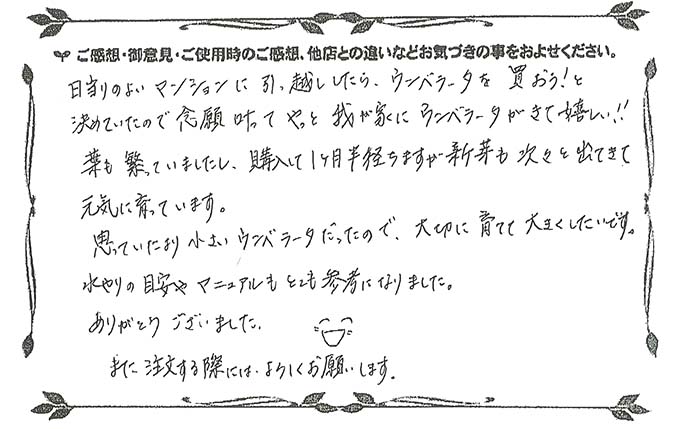 ご感想・御意見・ご使用時のご感想、他店との違いなどお気づきの事をおよせください。
日当りのよい マンションに 引っ越ししたら、ウンベラータを 買おう!と
決めていたので 念願 叶って やっと 我が家に ウンベラータがきて 嬉しい!!
葉も 繁っていましたし、購入して1ヶ月半経ちますが 新芽も 次々と 出てきて
元気に育っています。
思っていたより 小さい ウンベラータだったので、大切に 育てて 大きくしたいです。
水やりの目安や マニュアルも とても 参考になりました。
ありがとう ございました。
また 注文する際には、よろしくお願いします。